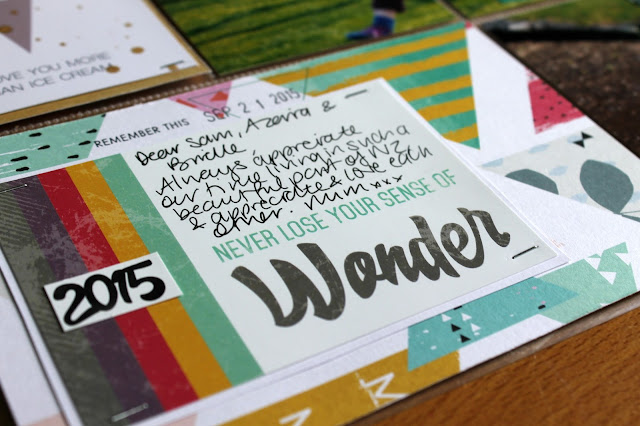 OVE YOU MORE
AN ICE CREAM
REMEMBER THIS SEP 21 2015
Dear Sam, Azerra &
Brielle
Always appreciate
our time living in such a
beautiful part of NZ
& appreciate & love each
other. Mum xxx
NEVER LOSE YOUR SENSE OF
Wonder
2015